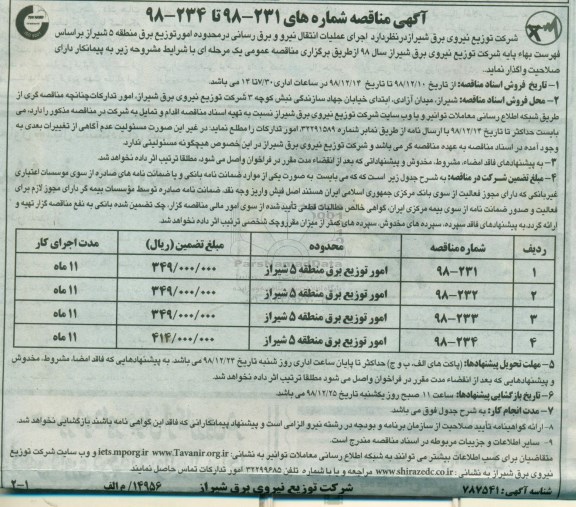 آگهی مناقصه شماره های ۲۳۱-۹۸ تا ۲۳۴-۹۸
شرکت توزیع نیروی برق شیراز درنظردارد اجرای عملیات انتقال نیرو و برق رسانی درمحدوده امورتوزیع برق منطقه ۵ شیراز براساس
فهرست بهاء پایه شرکت توزیع نیروی برق شیراز سال ۹۸ ازطریق برگزاری مناقصه عمومی یک مرحله ای با شرایط مشروحه زیر به پیمانکار دارای
صلاحیت واگذار نماید.
۱- تاریخ فروش اسناد مناقصه: از تاریخ ۹۸/۱۲/۱۰ تا تاریخ ۹۸/۱۲/۱۳ در ساعات اداری ۷/۳۰ تا ۱۳ می باشد.
۲- محل فروش اسناد مناقصه: شیراز، میدان آزادی، ابتدای خیابان جهاد سازندگی نبش کوچه ۳ شرکت توزیع نیروی برق شیراز، امور تدارکات چنانچه مناقصه گری از
طریق شبکه اطلاع رسانی معاملات توانیر و یا وب سایت شرکت توزیع نیروی برق شیراز نسبت به تهیه اسناد مناقصه اقدام و تمایل به شرکت در مناقصه مذکور را دارد، می
بایست حداکثر تا تاریخ ۹۸/۱۲/۱۳ با ارسال نامه از طریق نمابر شماره ۳۲۲۹۱۵۸۹ امور تدارکات را مطلع نماید؛ در غیر این صورت مسئولیت عدم آگاهی از تغییرات بعدی به
وجود آمده در اسناد مناقصه به عهده مناقصه گر می باشد و شرکت توزیع نیروی برق شیراز در این خصوص هیچگونه مسئولیتی ندارد.
۳- به پیشنهادهای فاقد امضاء، مشروط، مخدوش و پیشنهاداتی که بعد از انقضاء مدت مقرر در فراخوان واصل می شود مطلقا ترتیب اثر داده نخواهد شد.
۴- مبلغ تضمین شرکت در مناقصه: به شرح جدول زیر است که که می بایست به صورت یکی از موارد ضمانت نامه بانکی و یا ضمانت نامه های صادره از سوی موسسات اعتباری
غیر بانکی که دارای مجوز فعالیت از سوی بانک مرکزی جمهوری اسلامی ایران هستند اصل فیش واریز وجه نقد، ضمانت نامه صادره توسط مؤسسات بیمه گر دارای مجوز لازم برای
فعالیت و صدور ضمانت نامه از سوی بیمه مرکزی ایران، گواهی خالص مطالبات قطعی تأیید شده از سوی امور مالی مناقصه گزار، چک تضمین شده بانکی به نفع مناقصه گزار تهیه و
ارائه گردد به پیشنهادهای فاقد سپرده، سپرده های مخدوش، سپرده های کمتر از میزان مقرر و چک شخصی ترتیب اثر داده نخواهد شد.
ردیف شماره مناقصه محدوده مبلغ تضمین (ریال) مدت اجرای کار
۱ ۹۸-۲۳۱ امور توزیع برق منطقه ۵ شیراز ۳۴۹/۰۰۰/۰۰۰ ۱۱ ماه
۲ ۹۸-۲۳۲ امور توزیع برق منطقه ۵ شیراز ۳۴۹/۰۰۰/۰۰۰ ۱۱ ماه
۳ ۹۸-۲۳۳ امور توزیع برق منطقه ۵ شیراز ۳۴۹/۰۰۰/۰۰۰ ۱۱ ماه
۴ ۹۸-۲۳۴ امور توزیع برق منطقه ۵ شیراز ۴۱۴/۰۰۰/۰۰۰ ۱۱ ماه
۵- مهلت تحویل پیشنهادها: (پاکت های الف، ب و ج) حداکثر تا پایان ساعت اداری روز شنبه تاریخ ۹۸/۱۲/۲۴ می باشد. به پیشنهادهایی که فاقد امضا، مشروط، مخدوش
و پیشنهادهایی که بعد از انقضاء مدت مقرر در فراخوان واصل می شود مطلقا ترتیب اثر داده نخواهد شد.
۶- تاریخ بازگشایی پیشنهادها: ساعت ۱۱ صبح روز یکشنبه تاریخ ۹۸/۱۲/۲۵ می باشد.
۷- مدت انجام کار: به شرح جدول فوق می باشد.
۸- ارائه گواهینامه تأیید صلاحیت از سازمان برنامه و بودجه در رشته نیرو الزامی است و پیشنهاد پیمانکارانی که فاقد این گواهی نامه باشند بازگشایی نخواهد شد.
۹- سایر اطلاعات و جزییات مربوطه در اسناد مناقصه مندرج است.
متقاضیان برای کسب اطلاعات بیشتر می توانند به شبکه اطلاع رسانی معاملات توانیر به نشانی: www.Tavanir.org.ir و iets.mporg.ir و وب سایت شرکت توزیع
نیروی برق شیراز به نشانی: www.shirazedc.co.ir مراجعه و یا با شماره تلفن ۳۲۲۹۹۶۸۵ امور تدارکات تماس حاصل نمایند.
شناسه آگهی: ۷۸۷۵۴۱ شرکت توزیع نیروی برق شیراز ۱۴۹۵۶/م الف ۲-۱